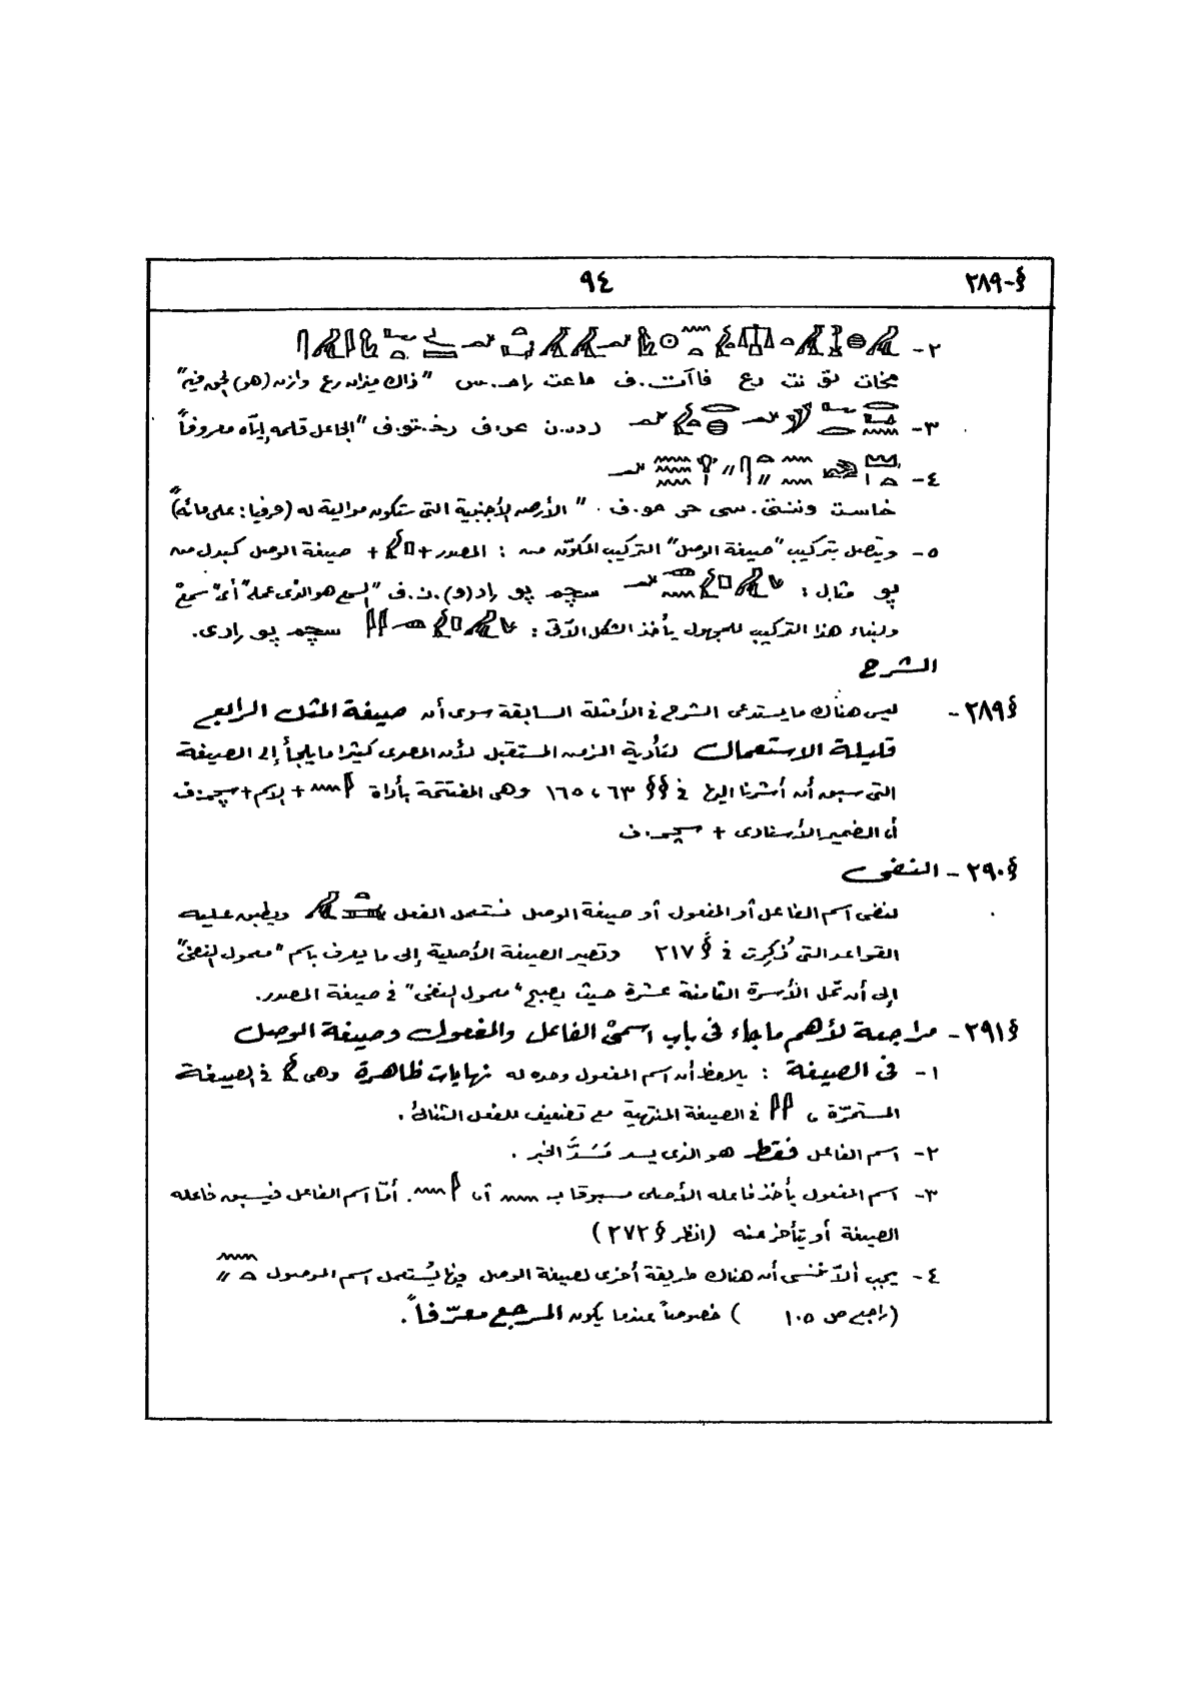 §-٢٨٩ ٩٤
٢-
مخات نو نت رع فاآت.ف ماعت إم.س "ذاك ميزان رع وازن (هو) الحق فيه"
٣- ردى.ن عو.ف رخ.تو.ف "الجاعل قلمه إياه معروفاً"
٤-
خاست وننتى.سى حر مو.ف. "الأرض الأجنبية التى ستكون موالية له (حرفيا: على مائه)"
٥- ويتصل بتركيب "صيغة الوصل" التركيب المكوّن من: المصدر + + صيغة الوصل كبدل من
پو مثال: سچم پو إر(و).ن.ف "السمع هو الذى عمله" أى "سمع"
ولبناء هذا التركيب للمجهول يأخذ الشكل الآتى: سچم پو إرى.
الشرح
§٢٨٩- ليس هناك ما يستدعى الشرح فى الأمثلة السابقة سوى أن صيغة المثل الرابع
قليلة الاستعمال لتأدية الزمن المستقبل لأن المصرى كثيرا ما يلجأ إلى الصيغة
التى سبق أن أشرنا اليها فى §§ ٦٣، ١٦٥ وهى المفتتحة بأداة + الاسم + سچم.ف
أو الضمير الأسنادى + سچم.ف
§٢٩٠- النفى
لنفى اسم الفاعل أو المفعول أو صيغة الوصل نستعمل الفعل ويطبق عليه
القواعد التى ذُكِرت فى § ٢١٧ وتصير الصيغة الأصلية إلى ما يعرف باسم "معمول النفى"
إلى أن تحل الأسرة الثامنة عشرة حيث يصبح "معمول النفى" فى صيغة المصدر.
§٢٩١- مراجعة لأهم ما جاء فى باب اسمىْ الفاعل والمفعول وصيغة الوصل
١- فى الصيغة: يلاحظ أن اسم المفعول وحده له نهايات ظاهرة وهى فى الصيغة
المستمرّة، فى الصيغة المنتهية مع تضعيف للفعل الثنائى.
٢- اسم الفاعل فقط هو الذى يسد مَسَدَّ الخبر.
٣- اسم المفعول يأخذ فاعله الأصلى مسبوقا بـ أو. أمّا اسم الفاعل فيسبق فاعله
الصيغة أو يتأخر عنه (انظر § ٢٧٢)
٤- يجب ألاّ ننسى أن هناك طريقة أخرى لصيغة الوصل وفيها يُستعمل اسم الموصول
(راجع ص ١٠٥ ) خصوصاً عندما يكون المرجع معرّفاً.